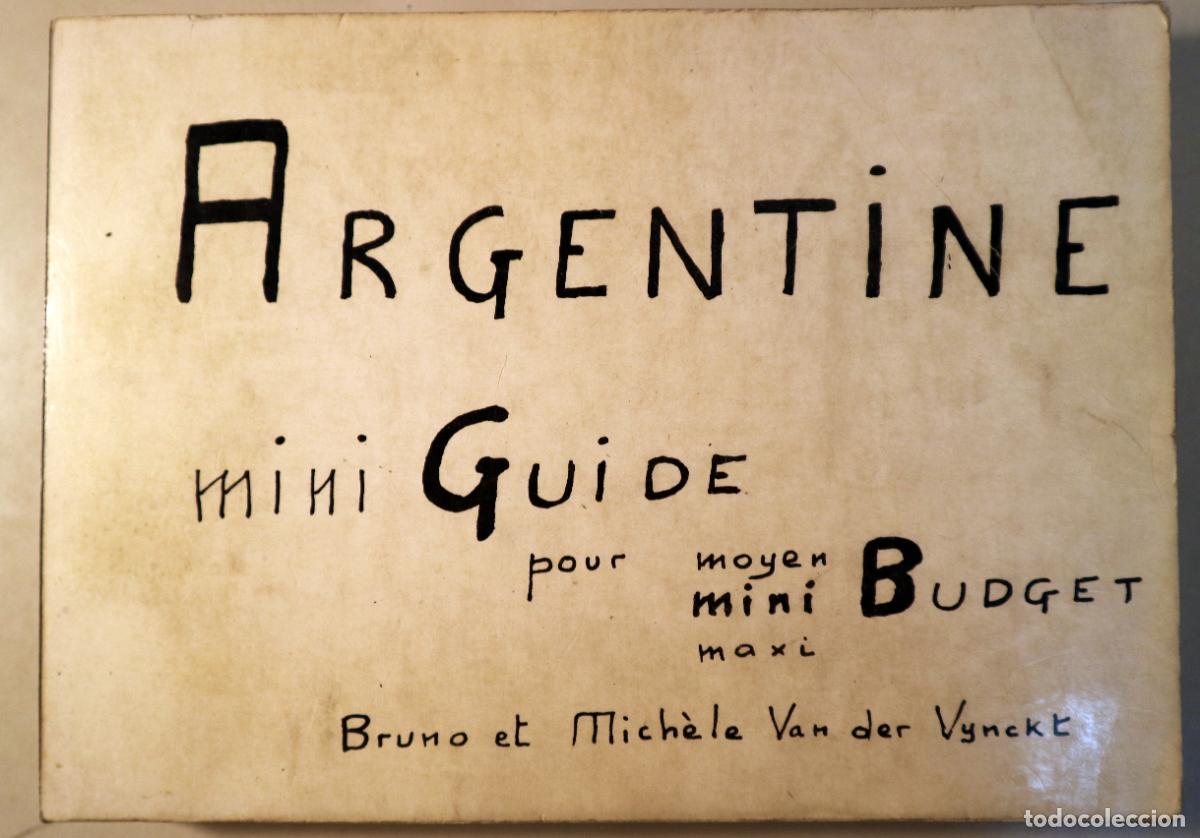 ARGENTiNE
mini GUiDE
pour moyen
mini BUDGET
maxi
Bruno et Michèle Van der Vynckt
todocoleccion